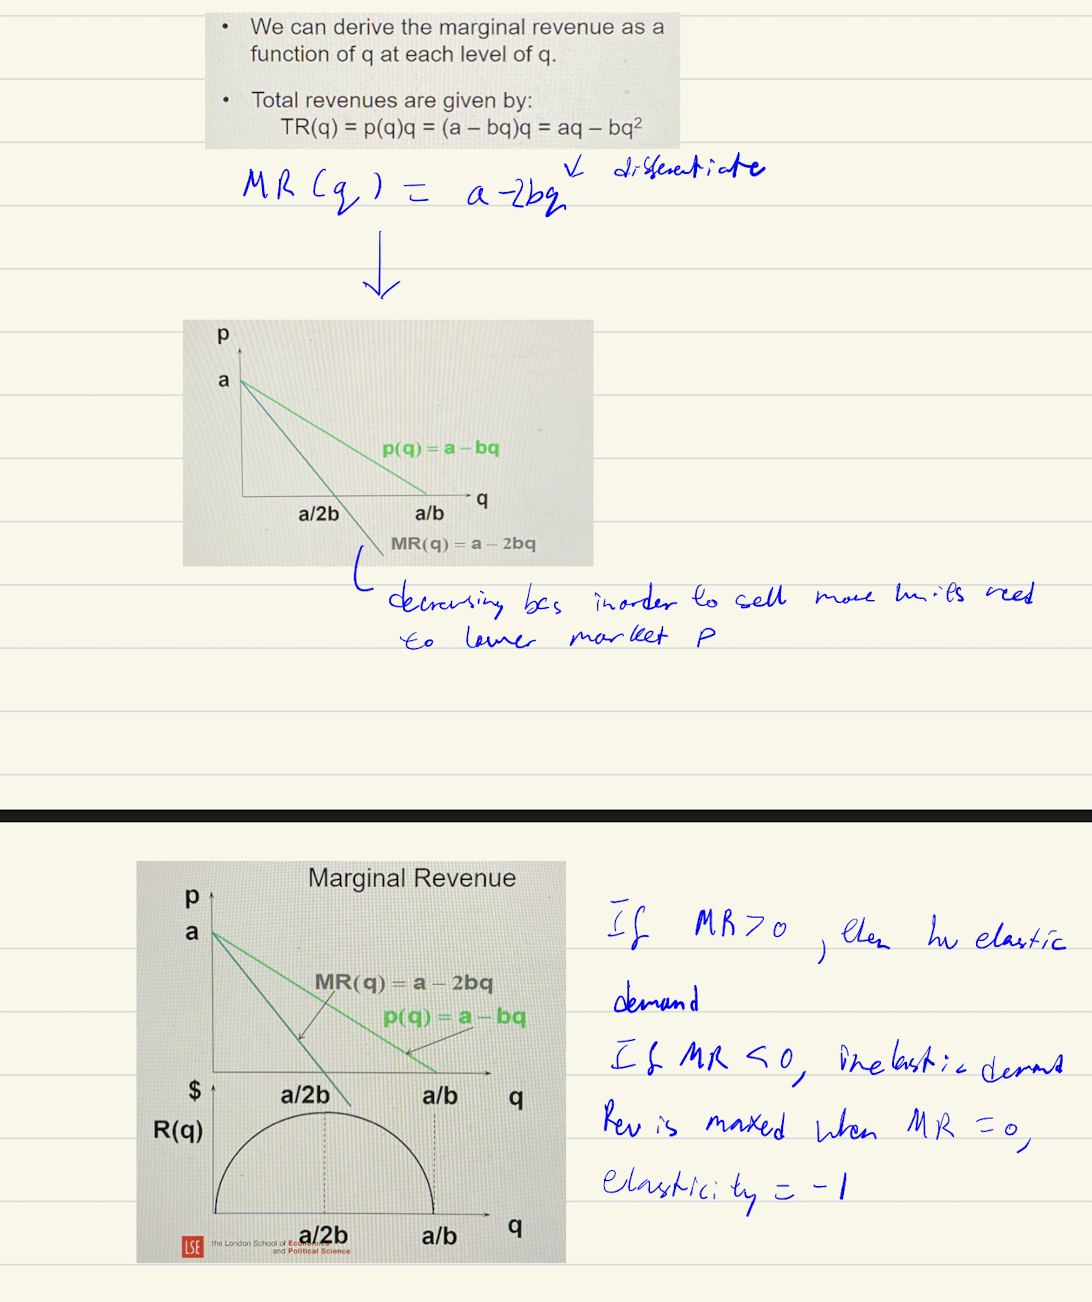 • We can derive the marginal revenue as a
function of q at each level of q.
• Total revenues are given by:
TR(q) = p(q)q = (a – bq)q = aq – bq²
↓ differentiate
MR(q) = a-2bq
p
a
p(q) = a – bq
q
a/2b
a/b
MR(q) = a – 2bq
decreasing bcs inorder to sell more units need
to lower market P
Marginal Revenue
p
a
MR(q) = a – 2bq
p(q) = a – bq
$
a/2b
a/b
q
R(q)
a/2b
a/b
q
LSE the London School of Economics
and Political Science
If MR>0, then hv elastic
demand
If MR <0, inelastic demand
Rev is maxed when MR =0,
elasticity = -1